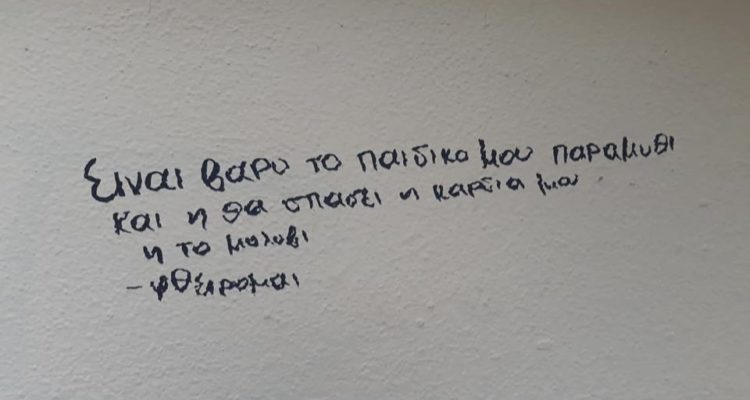 Ειναι βαρυ το παιδικο μου παραμυθι
και η θα σπασει η καρδια μου
η το μολυβι
- φθειρομαι